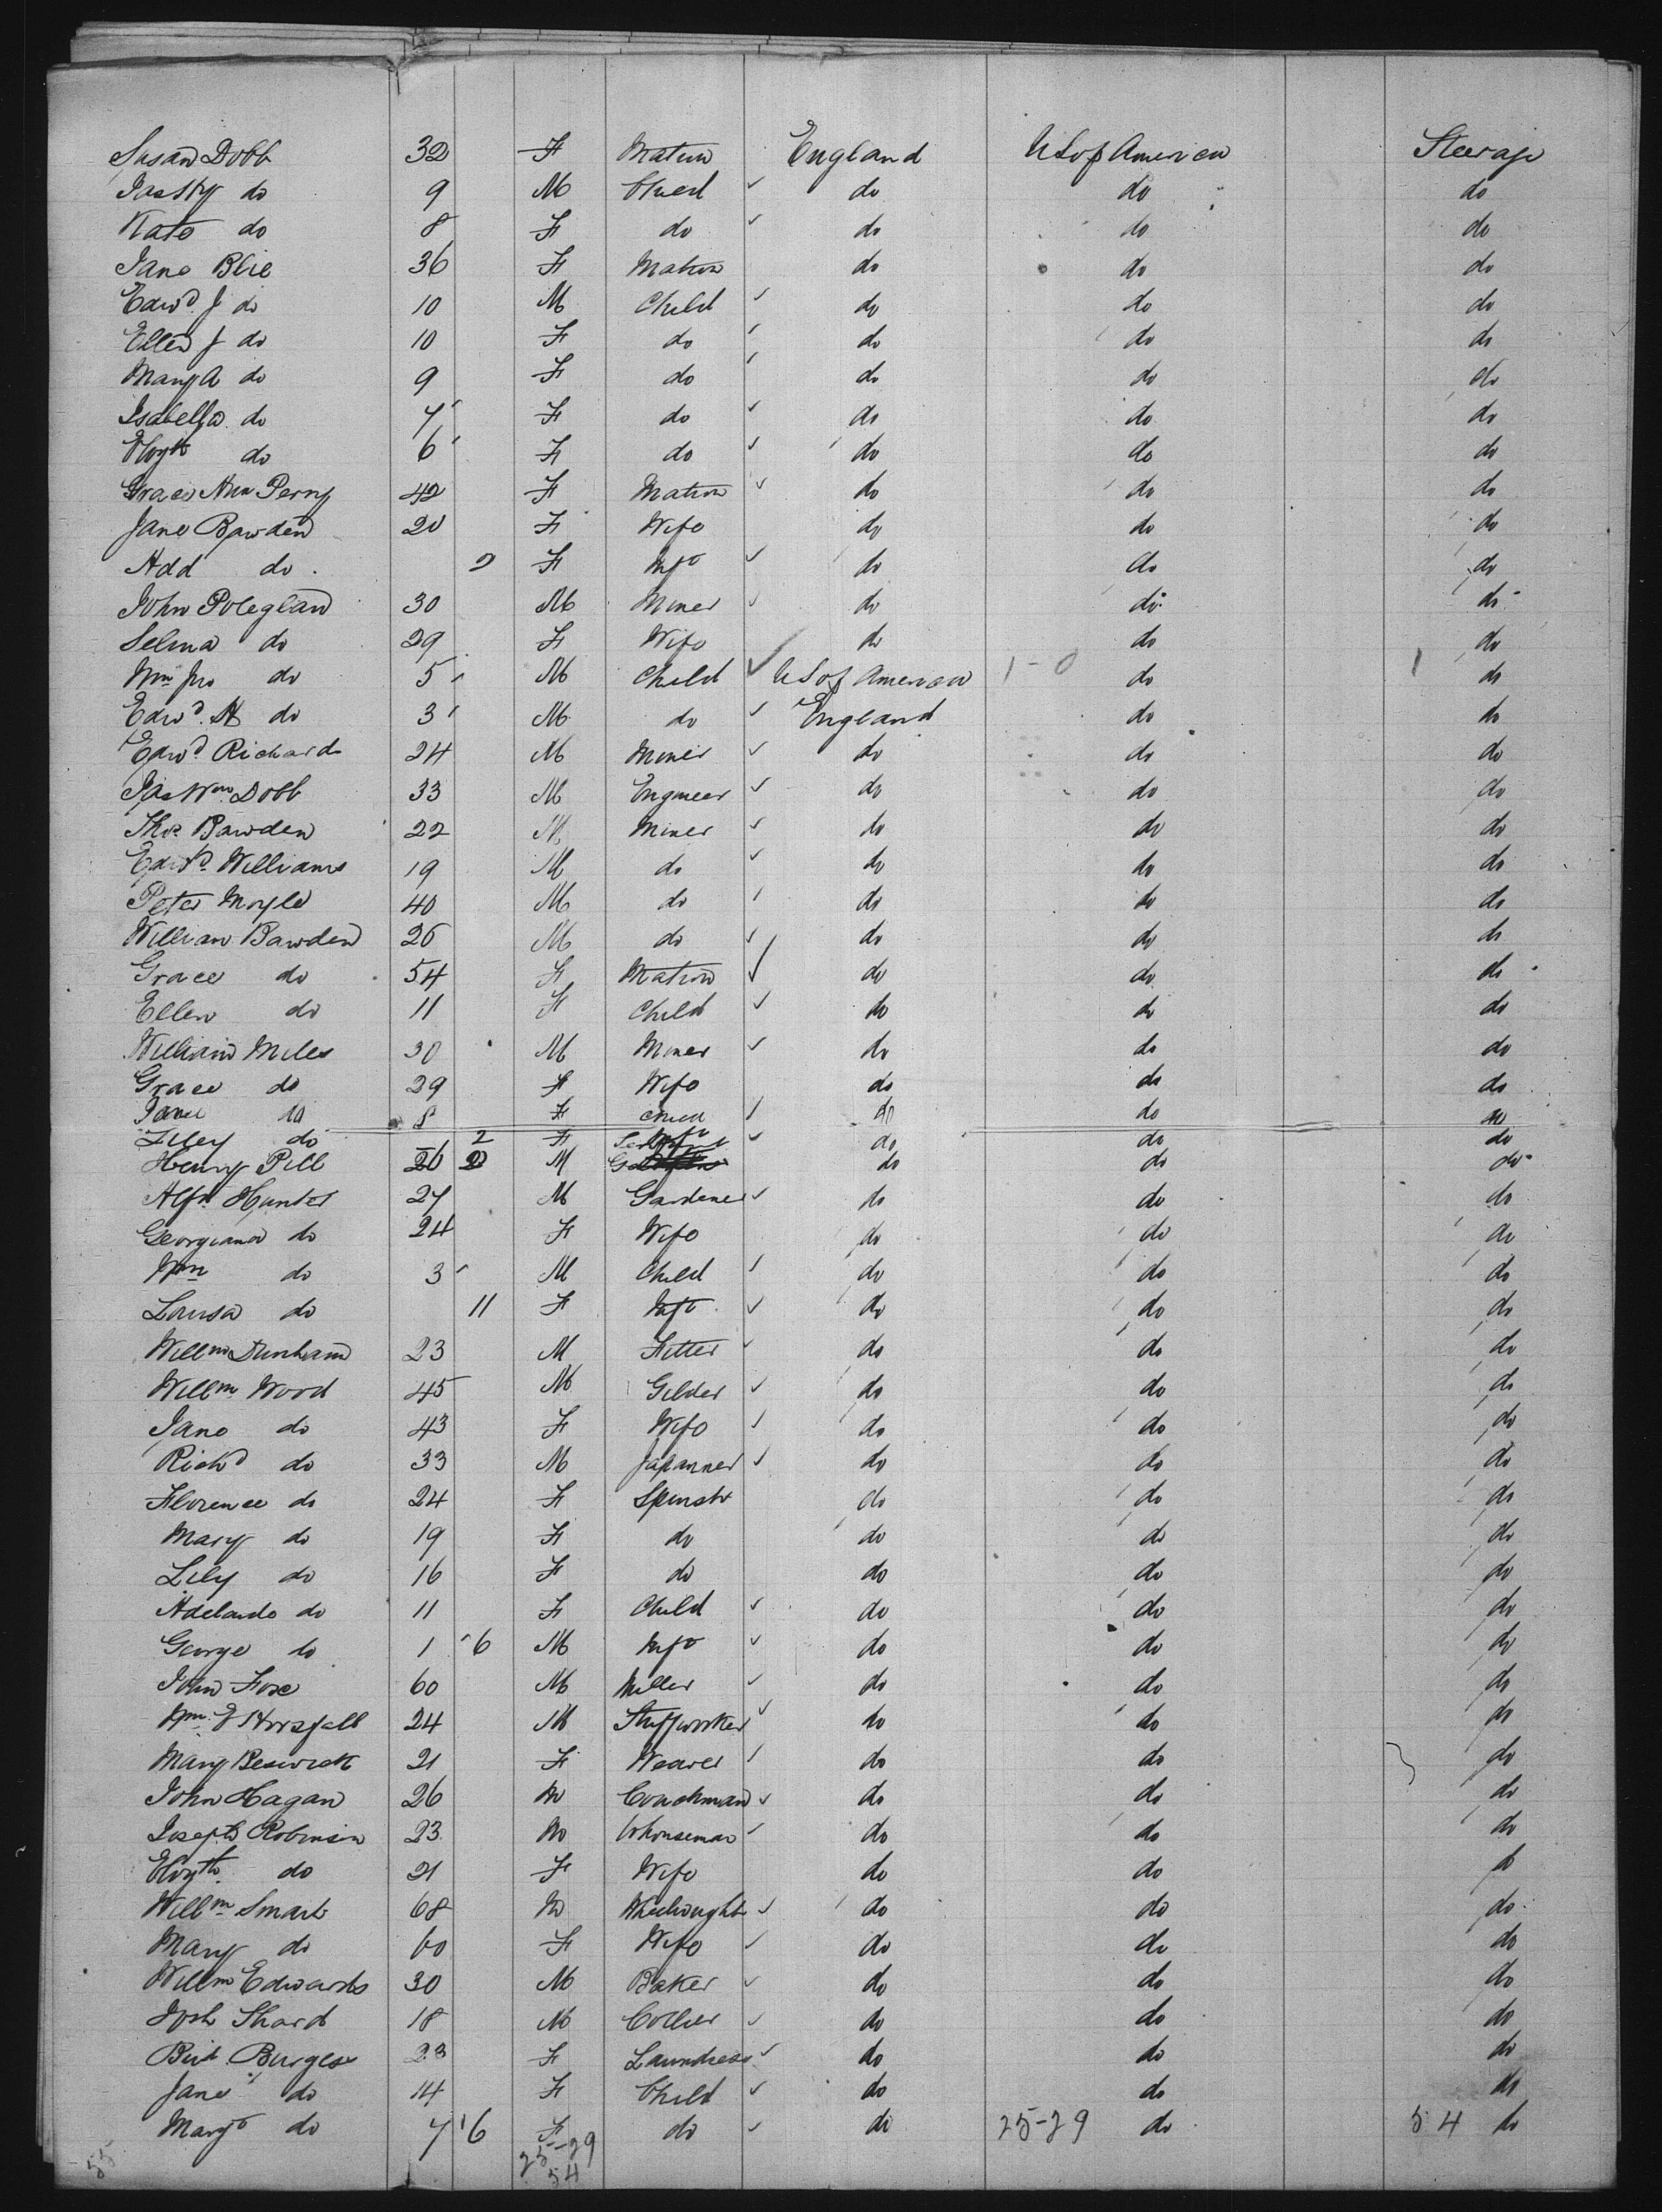 Susan Dobb 32 F Matron England U S of America Steerage
Jas Hy do 9 M Child ✓ do do do
Kate do 8 F do ✓ do do do
Jane Blie 36 F Matron do do do
Edwd. J do 10 M Child ✓ do do do
Ellen J do 10 F do do do do
Mary A do 9 F do do do do
Isabella do 7 F do ✓ do do do
Elizth do 6 F do ✓ do do do
Grace Ann Perry 42 F Matron ✓ do do do
Jane Bawden 20 F Wife do do do
Add do 9 F Inft ✓ do do do
John Poleglan 30 M Miner ✓ do do do
Selina do 29 F Wife do do do
Wm Jno do 5 M Child ✓ U S of America 1-0 do 1 do
Edwd. H do 3 M do ✓ England do do
Edwd Richards 24 M Miner ✓ do do do
Jas Wm Dobb 33 M Engineer ✓ do do do
Thos Bawden 22 M Miner ✓ do do do
Edwd. Williams 19 M do ✓ do do do
Peter Moyle 40 M do do do do
William Bawden 26 M do ✓ do do do
Grace do 54 F Matron ✓ do do do
Ellen do 11 F Child ✓ do do do
William Miles 30 M Miner ✓ do do do
Grace do 29 F Wife do do do
Jane do 8 F Child do do do
Liley do 2 F Inft ✓ do do do
Henry Pill 26 M do do do
Alfd. Hunter 27 M Gardener ✓ do do do
Georgiana do 24 F Wife do do do
Wm do 3 M Child do do do
Louisa do 11 F Inft ✓ do do do
Willm Dunham 23 M Fitter ✓ do do do
Willm Wood 45 M Gilder ✓ do do do
Jane do 43 F Wife do do do
Richd do 33 M Japanner ✓ do do do
Florence do 24 F Spinstr do do do
Mary do 19 F do do do do
Lily do 16 F do do do do
Adelaide do 11 F Child ✓ do do do
George do 1 6 M Inft ✓ do do do
John Fox 60 M Miller ✓ do do do
Wm. E Horsfall 24 M Stuffworker ✓ do do do
Mary Beswick 21 F Weaver do do do
John Hagan 26 M Coachman ✓ do do do
Joseph Robinson 23 M Whouseman do do do
Elizth. do 21 F Wife do do do
Willm Smart 68 M Wheelwright ✓ do do do
Mary do 60 F Wife ✓ do do do
Willm Edwards 30 M Baker ✓ do do do
Josh Shard 18 M Collier ✓ do do do
Bird. Burgess 23 F Laundress ✓ do do do
Jane do 14 F Child ✓ do do do
Margt do 7 6 F do ✓ do 25-29 do 54 do
55 25-29
54